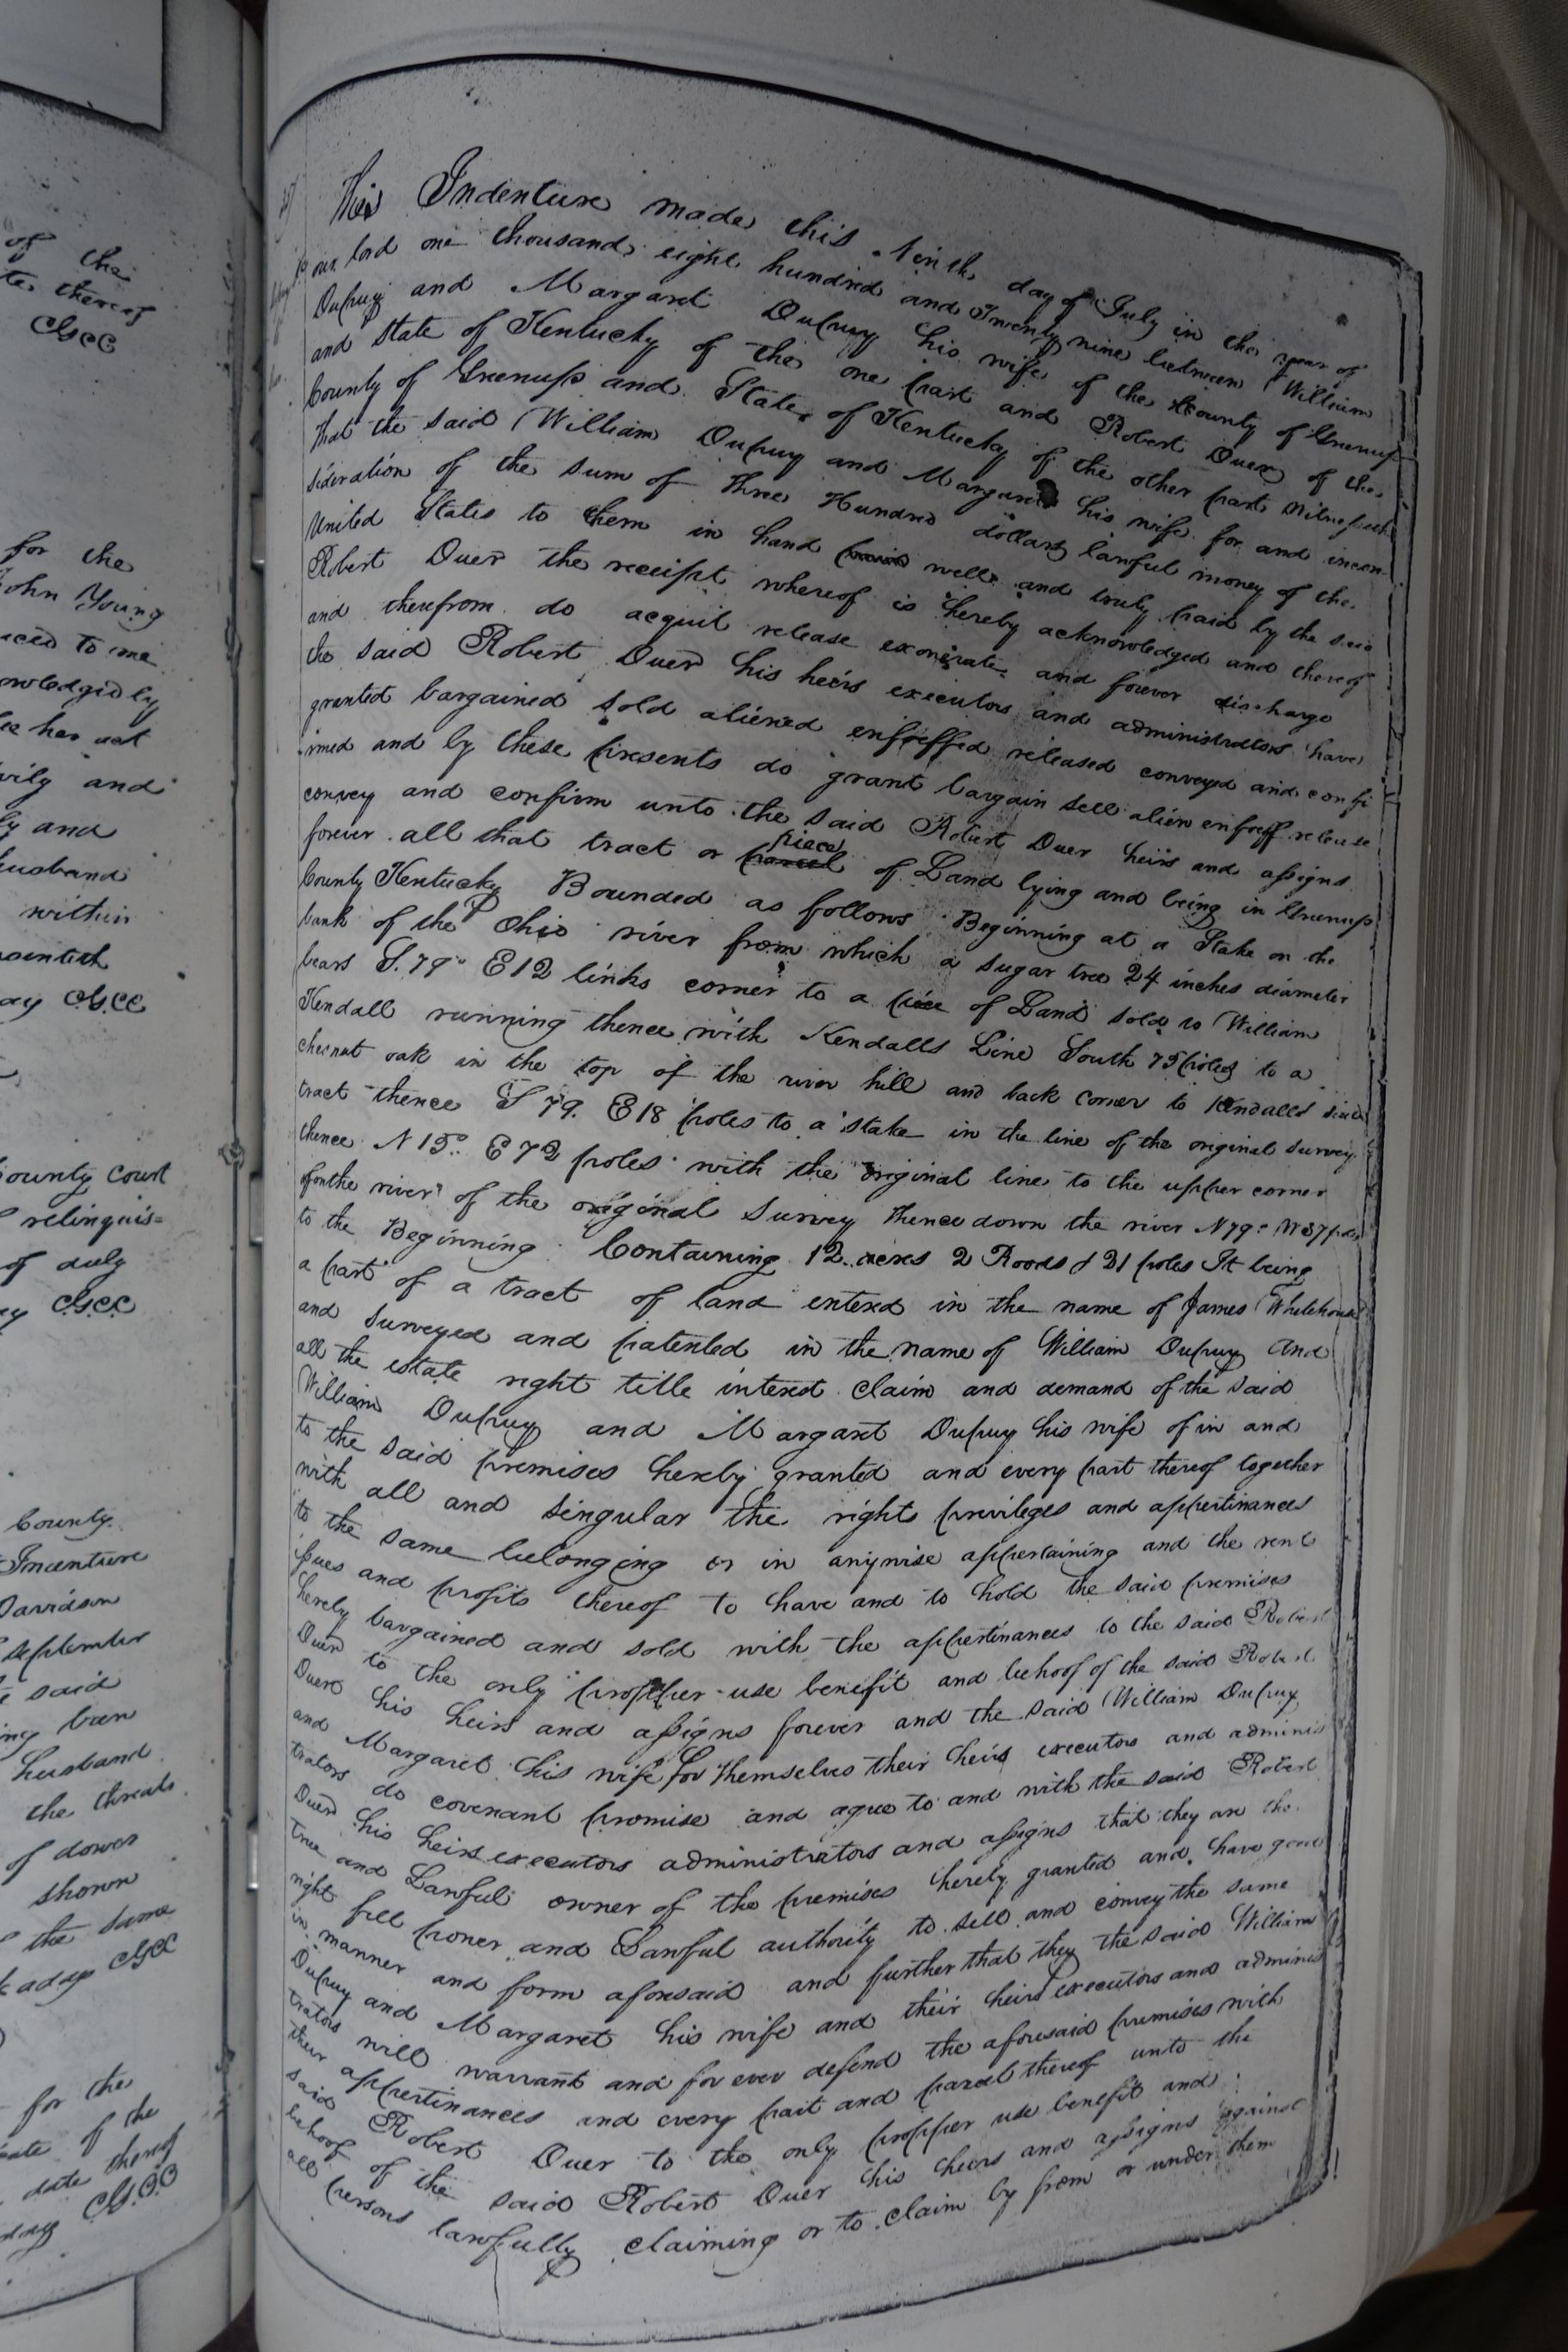 of the
thereof
CGCC
for the
John Young
to me
owledged by
he has not
and
ly and
husband
within
ay CGCC
County Court
relinquis=
of duly
CGCC
County
Indenture
Davidson
September
said
been
husband
the threats
of dower
shown
the same
CGCC
for the
of the
date thereof
This Indenture made this Ninth day of July in the year of
our lord one thousand eight hundred and Twenty nine between William
Dupuy and Margaret Dupuy his wife of the County of Greenup
and State of Kentucky of the one part and Robert Duer of the
County of Greenup and State of Kentucky of the other part Witnesseth
That the said William Dupuy and Margaret his wife for and incon-
sideration of the sum of Three Hundred dollars lawful money of the
United States to them in hand well and truly paid by the said
Robert Duer the receipt whereof is hereby acknowledged and thereof
and therefrom do acquit release exonerate and forever discharge
the said Robert Duer his heirs executors and administrators have
granted bargained sold aliened enfoeffed released conveyed and confi
irmed and by these presents do grant bargain sell alien enfoeff release
convey and confirm unto the said Robert Duer heirs and assigns
forever all that tract or parcel piece of Land lying and being in Greenup
County Kentucky Bounded as follows Beginning at a Stake on the
bank of the Ohio river from which a sugar tree 24 inches diameter
bears S. 79° E 12 links corner to a piece of Land sold to William
Kendall running thence with Kendalls Line South 75 poles to a
chesnut oak in the top of the river hill and back corner to Kendalls said
tract thence S 79. E 18 poles to a stake in the line of the original survey
thence N 15° E 72 poles with the original line to the upper corner
of on the river of the original Survey Thence down the river N 79° W 37 pos
to the Beginning Containing 12 acres 2 Roods & 21 poles It being
a part of a tract of land entered in the name of James Whitehouse
and surveyed and patented in the name of William Dupuy And
all the estate right title interest claim and demand of the said
William Dupuy and Margaret Dupuy his wife of in and
to the said premises hereby granted and every part thereof together
with all and singular the rights privileges and appertinances
to the same belonging or in anywise appertaining and the rent
issues and profits thereof to have and to hold the said premises
hereby bargained and sold with the appertinances to the said Robert
Duer to the only propper use benefit and behoof of the said Robert
Duer his heirs and assigns forever and the said William Dupuy
and Margaret his wife for themselves their heirs executors and adminis
trators do covenant promise and agree to and with the said Robert
Duer his heirs executors administrators and assigns that they are the
true and Lawful owner of the premises hereby granted and have good
right full power and Lawful authority to sell and convey the same
in manner and form aforesaid and further that they the said William
Dupuy and Margaret his wife and their heirs executors and adminis
trators will warrant and for ever defend the aforesaid premises with
their appertinances and every part and parcel thereof unto the
said Robert Duer to the only propper use benefit and
behoof of the said Robert Duer his heirs and assigns against
all persons lawfully claiming or to claim by from or under them